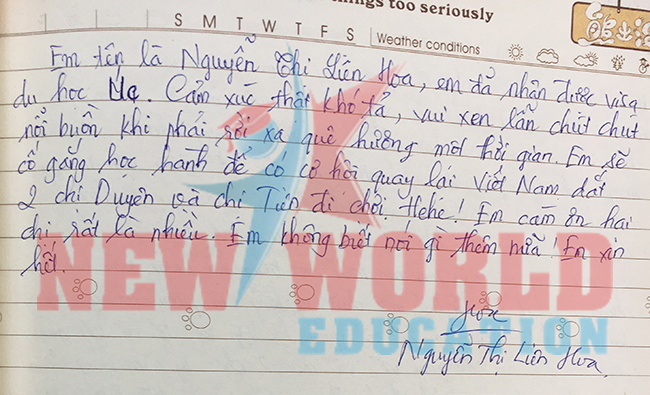 ings too seriously
S M T W T F S Weather conditions
Em tên là Nguyễn Thị Liên Hoa, em đã nhận được visa
du học Mỹ. Cảm xúc thật khó tả, vui xen lẫn chút chút
nỗi buồn khi phải rời xa quê hương một thời gian. Em sẽ
cố gắng học hành để có cơ hội quay lại Việt Nam dắt
2 chị Duyên và chị Tiên đi chơi. Hehe! Em cảm ơn hai
chị rất là nhiều. Em không biết nói gì thêm nữa! Em xin
hết.
NEW WORLD
EDUCATION
Hoa
Nguyễn Thị Liên Hoa